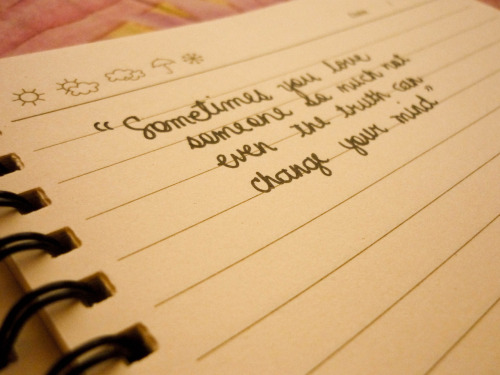 "Sometimes you love
someone so much not
even the truth can
change your mind"